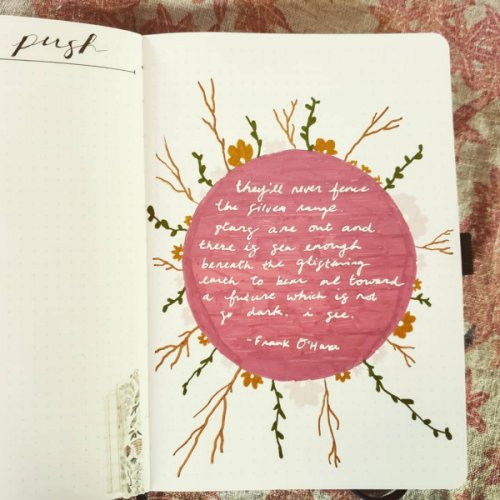 push
they'll never fence
the silver range.
stars are out and
there is sea enough
beneath the glistening
earth to bear me toward
a future which is not
so dark. i see.
-Frank O'Hara